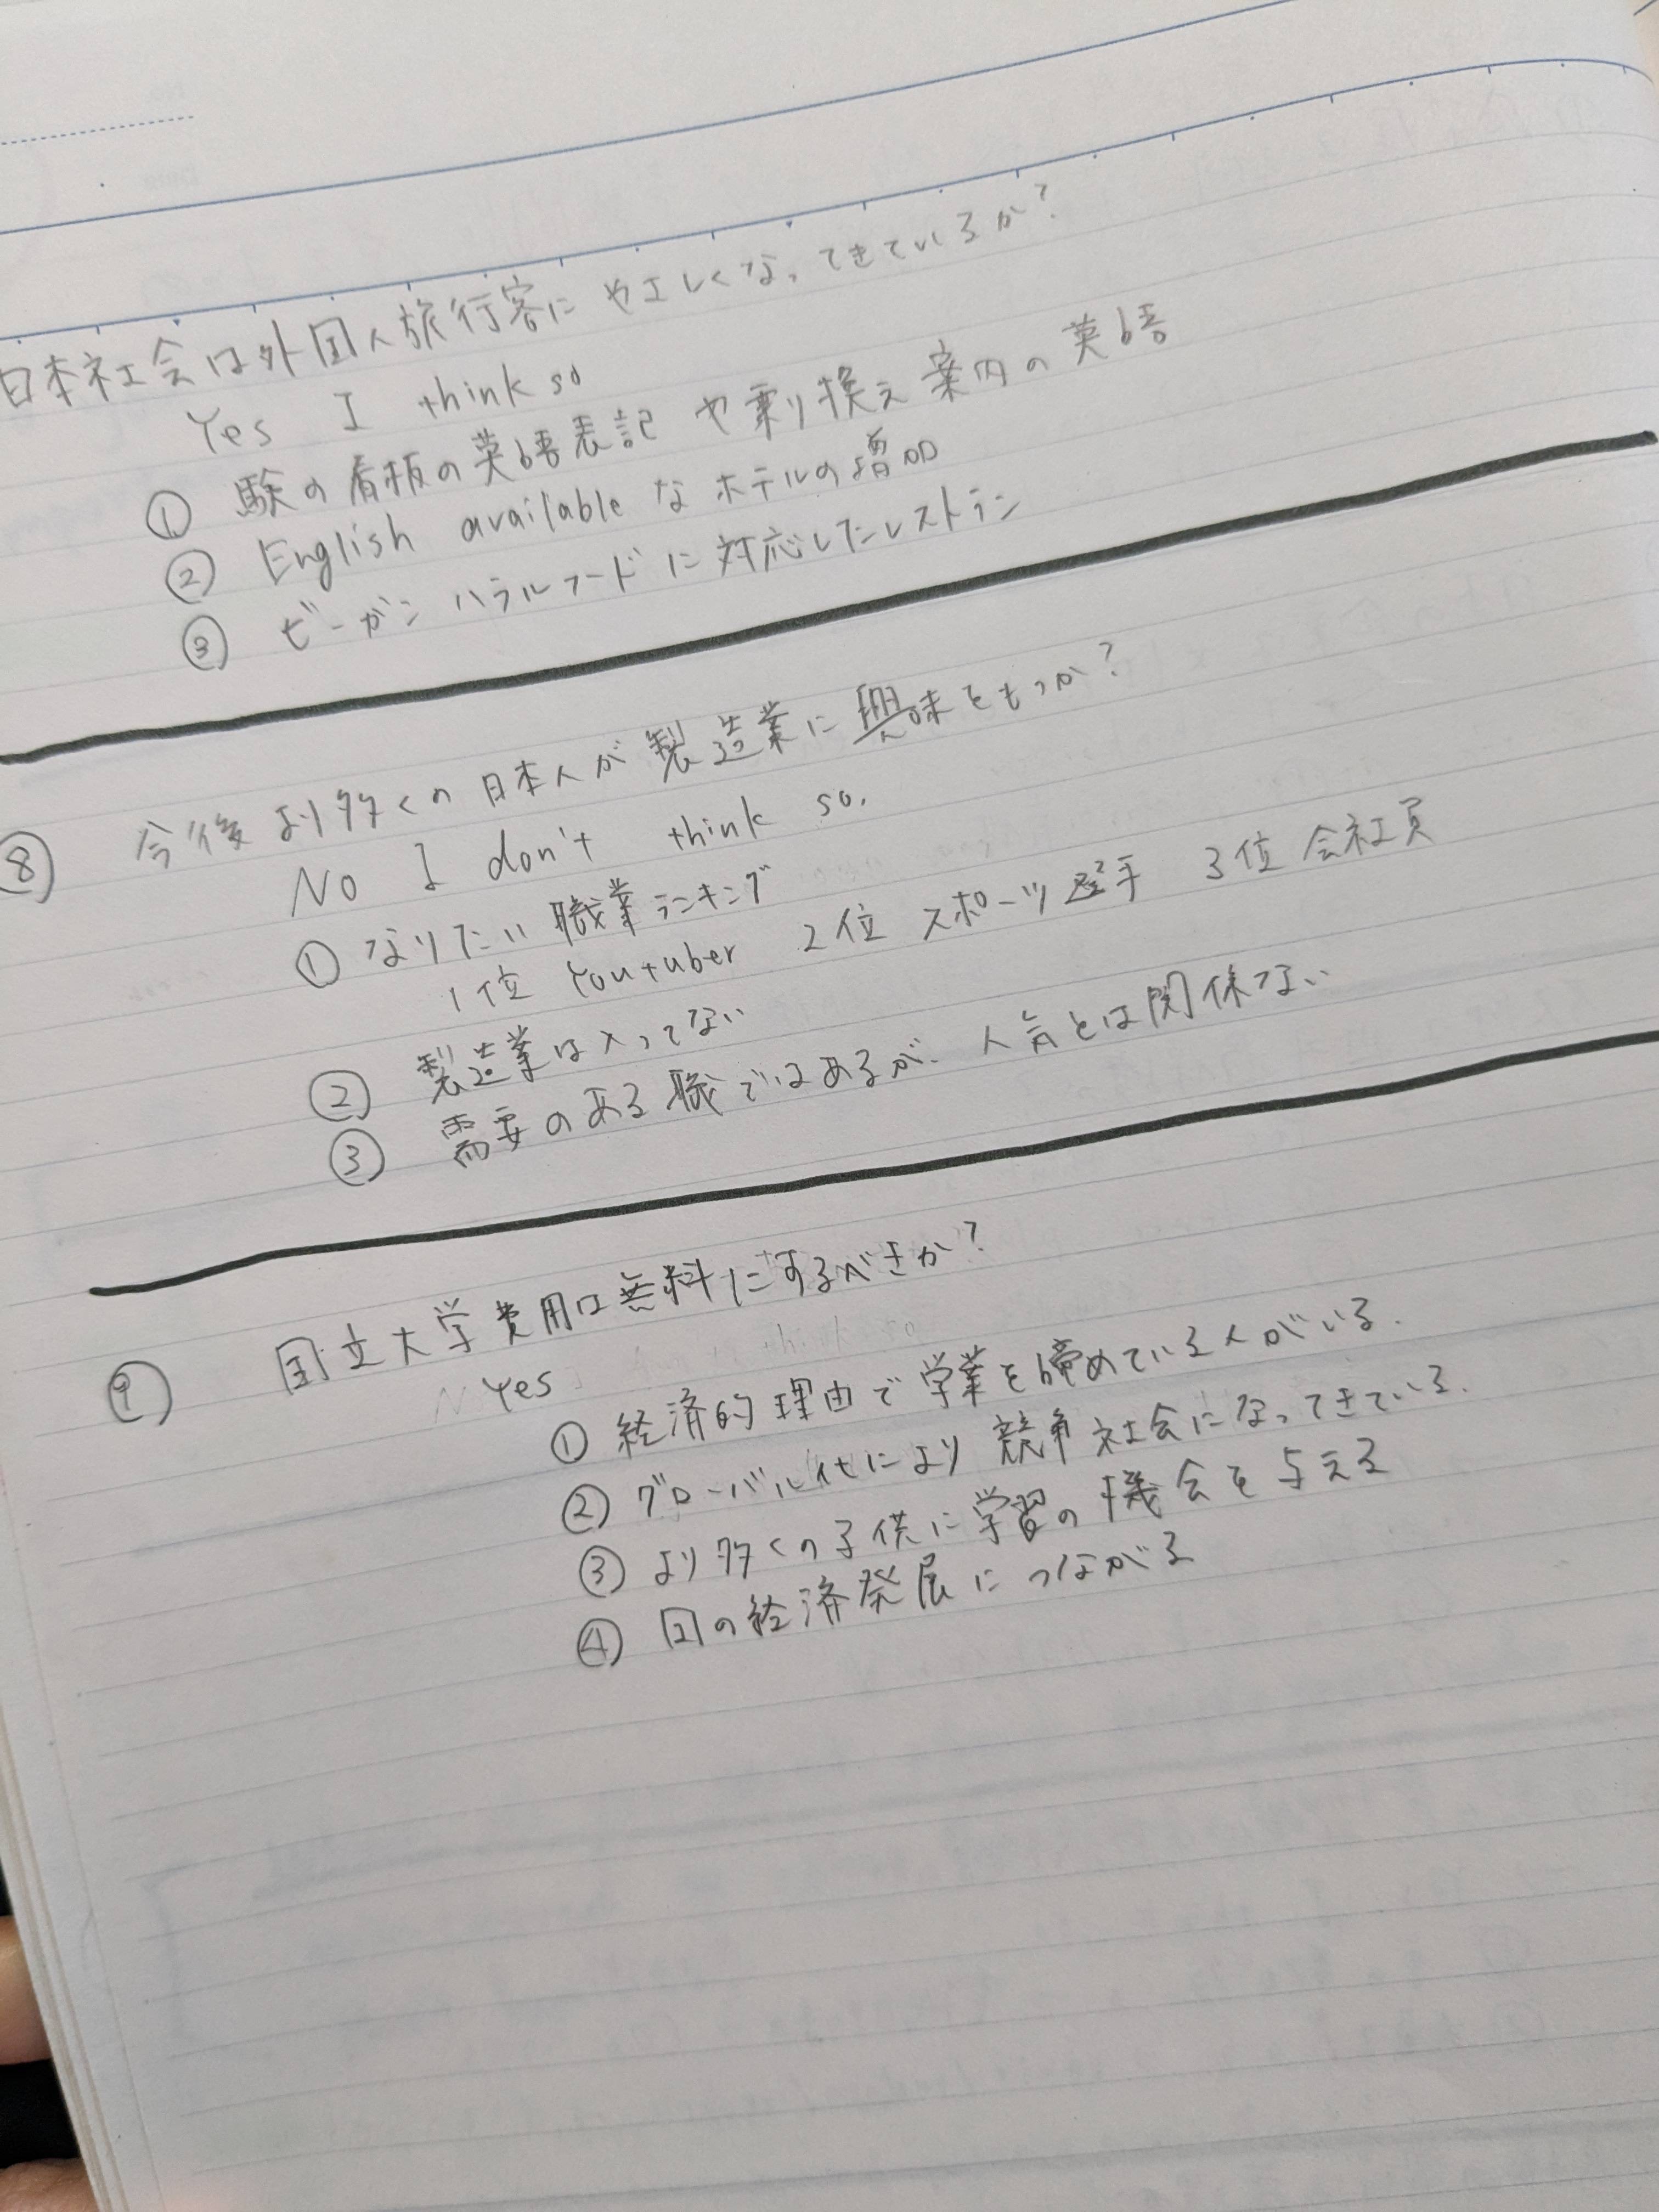 日本社会は外国人旅行客にやさしくなってきているか?
Yes I think so
① 駅の看板の英語表記や乗り換え案内の英語
② English available なホテルの増加
③ ビーガン ハラルフードに対応したレストラン
⑧ 今後より多くの日本人が製造業に興味をもつか?
No I don't think so.
① なりたい職業ランキング
1位 Youtuber 2位 スポーツ選手 3位 会社員
② 製造業は入ってない
③ 需要のある職ではあるが、人気とは関係ない
⑨ 国立大学費用は無料にするべきか?
Yes
① 経済的理由で学業を諦めている人がいる.
② グローバル化により競争社会になってきている.
③ より多くの子供に学習の機会を与える
④ 国の経済発展につながる